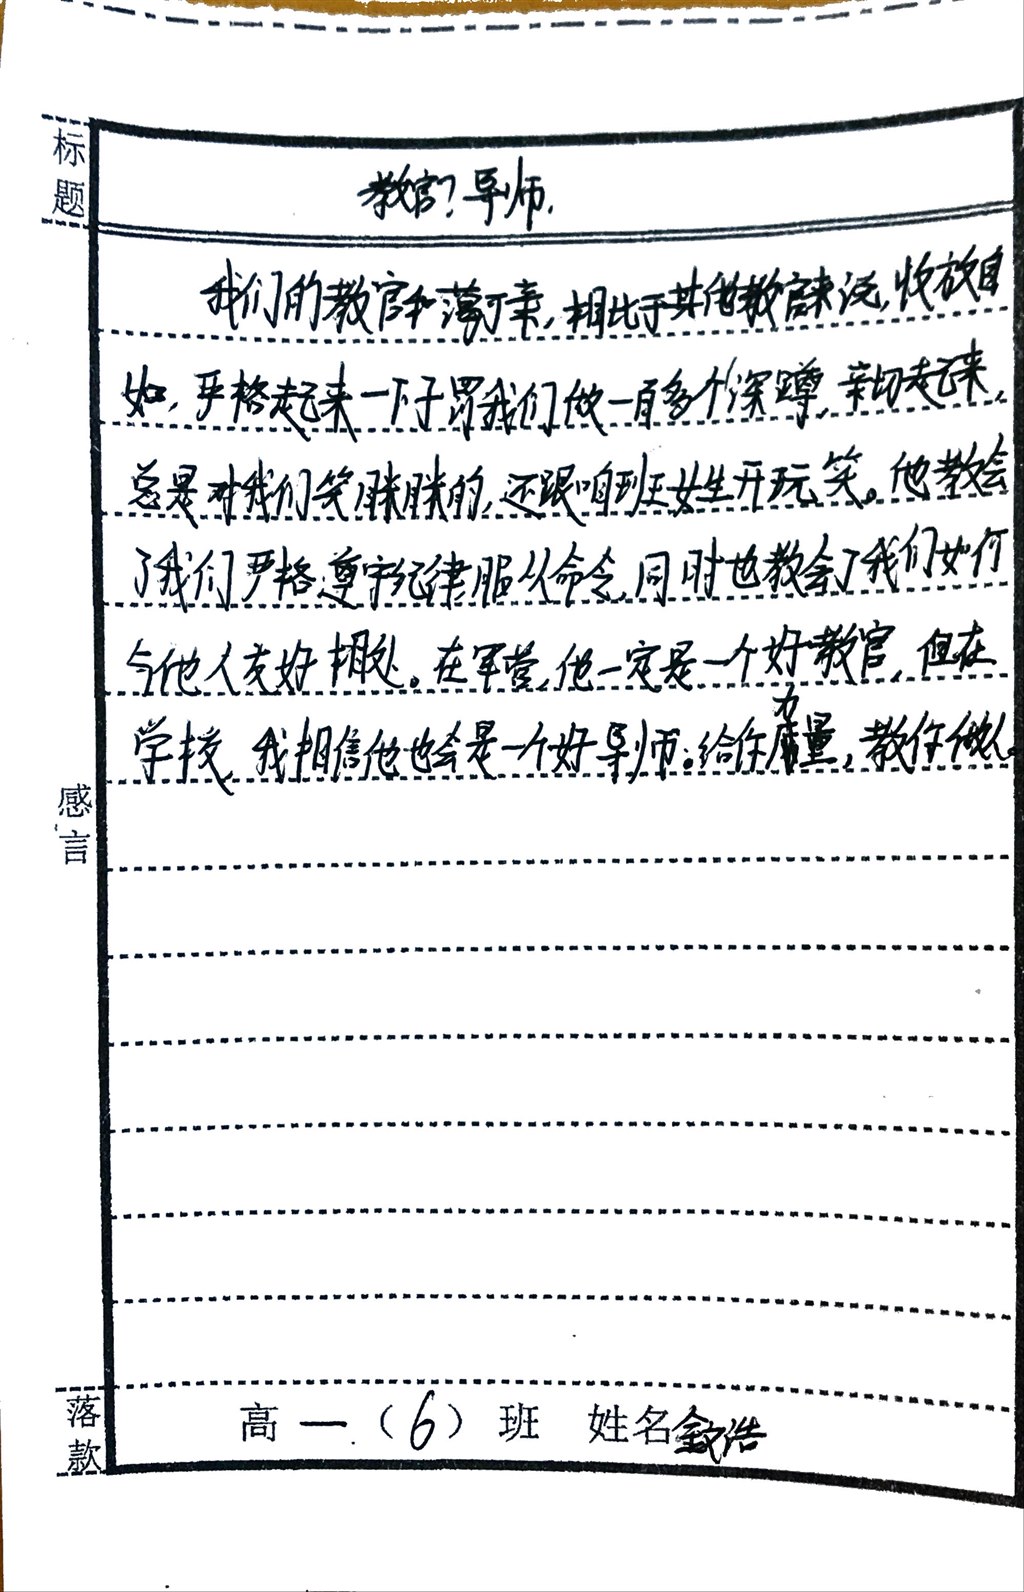 标题
教官？导师.
我们的教官和蔼可亲，相比于其他教官来说，收放自
如，严格起来一下子罚我们做一百多个深蹲，亲切起来，
总是对我们笑眯眯的，还跟咱班女生开玩笑。他教会
了我们严格遵守纪律服从命令，同时也教会了我们如何
与他人友好相处。在军营，他一定是一个好教官，但在
学校，我相信他也会是一个好导师：给你力量，教你做人。
感言
落款
高一（6）班 姓名 浩